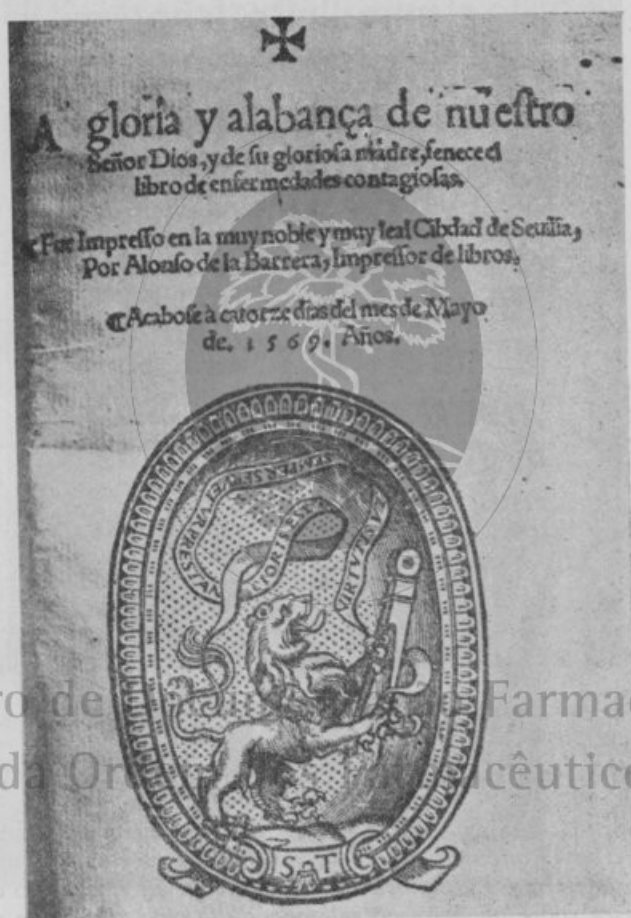 A gloria y alabança de nueſtro
Señor Dios, y de ſu glorioſa madre, fenece el
libro de enfermedades contagioſas.
Fue Impreſſo en la muy noble y muy leal Cibdad de Seuilla,
Por Alonſo de la Barrera, Impreſſor de libros.
Acaboſe à catorze dias del mes de Mayo
de. 1569. Años.
SEMPER SERVETVR PRESTAN
VIRTVTE
S T
de Farma
da Or cêutico